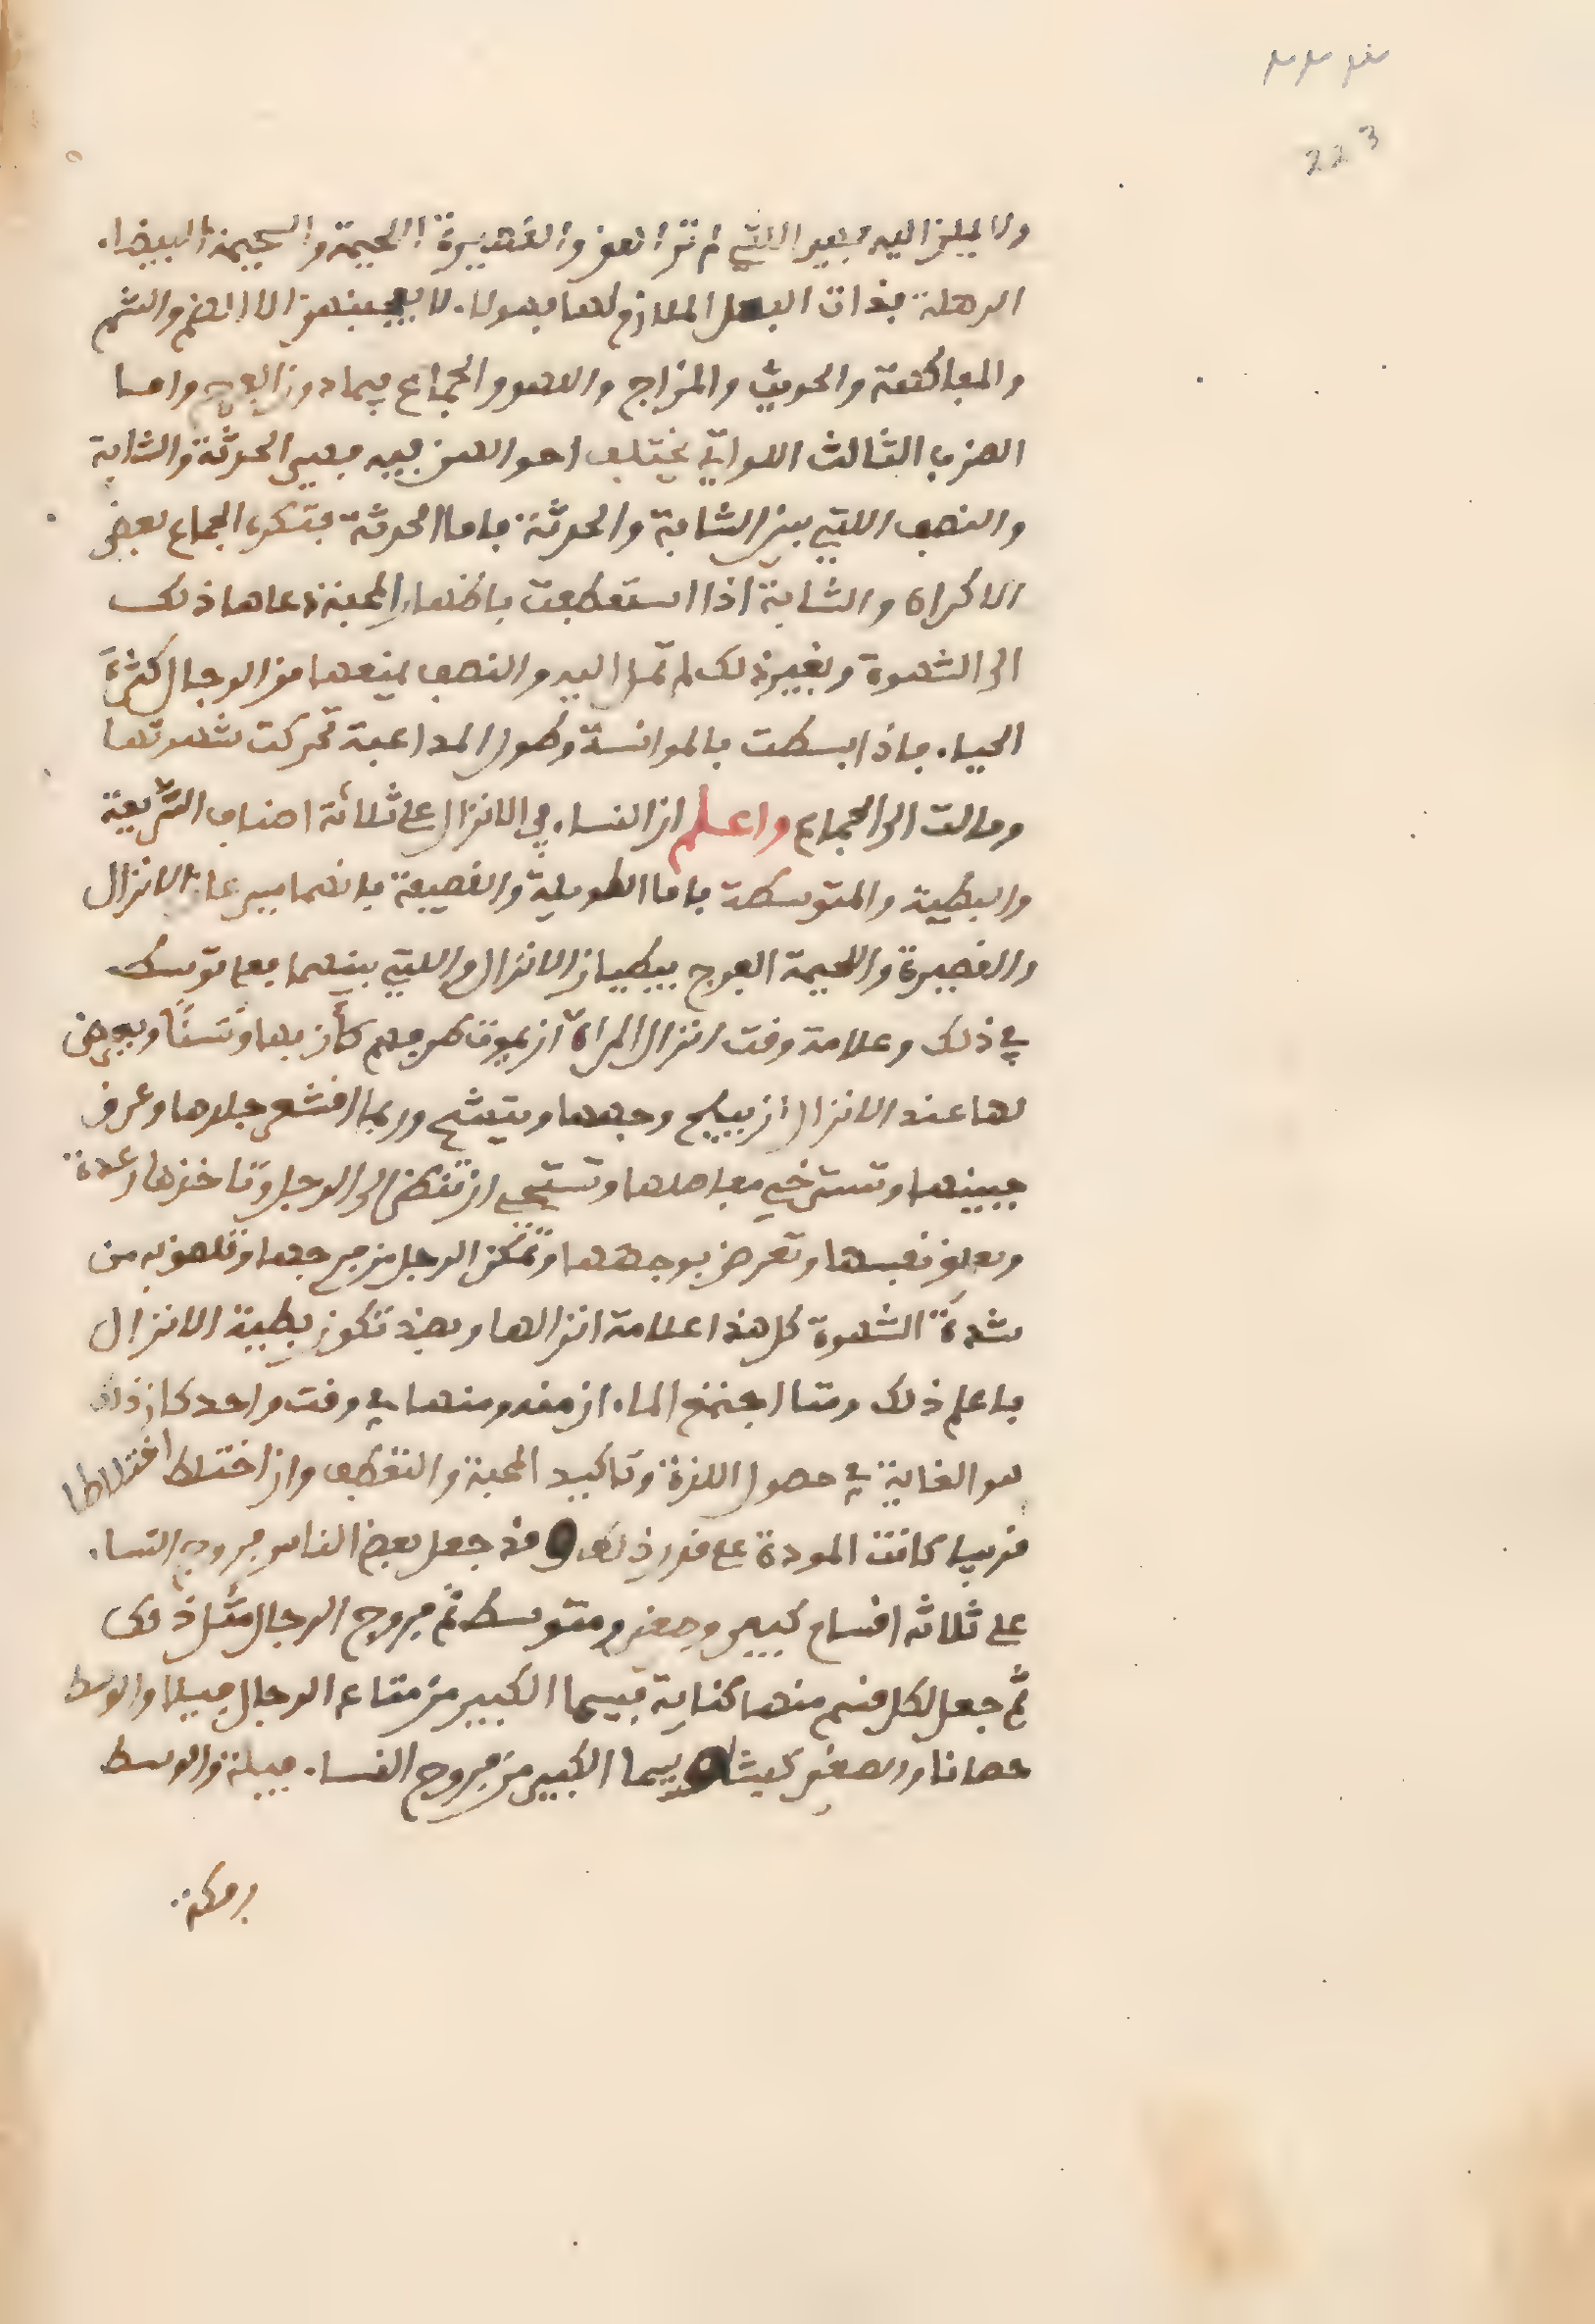 223
ولا يميلن اليه فهي اللتي لم تراهق والقصيرة اللحيمة والسحيمة البيضاء
الرهلة بذات البعل الملازم لها فهولاء لا يعجبهن الا الضم والشم
والمفاكهة والحديث والمزاج واللهو والجماع فيما دون الفرج واما
الضرب الثالث اللواتي يختلف احوالهن فيه فهي الحدثة والشابة
والنصف اللتي بين الشابة والحدثة فاما الحدثة فتكره الجماع بعض
الاكراه والشابة اذا استعطفت باظهار المحبة دعاها ذلك
الى الشهوة وبغير ذلك لم تمل اليه والنصف يمنعها من الرجال كثرة
الحياء فاذا بسطت بالموانسة وطول المداعبة تحركت شهوتها
ومالت الى الجماع واعلم ان النساء في الانزال على ثلاثة اصناف السريعة
والبطية والمتوسطة فاما الطويلة والقصيفة فانهما سريعات الانزال
والقصيرة واللحيمة الفرج بيطيان الانزال واللتي بينهما فما توسط
في ذلك وعلامة وقت انزال المراة ان يموت طرفهم كأن بها وسنا ويعرض
لها عند الانزال ان يبلج وجهها ويتشح وربما اقشعر جلدها وعرق
جبينها وتسترخي مفاصلها وتستحي ان تنظر الى الرجل وتاخذها رعدة
ويعلو نفسها وتعرض بوجهها وتمكن الرجل من فرجها وتلصق به من
شدة الشهوة كل هذا علامة انزالها وبضد تكون بطية الانزال
فاعلم ذلك ومتا اجتمع الماءان منه ومنها في وقت واحد كان ذلك
هو الغاية في حصول اللذة وتاكيد المحبة والتعطف وان اختلط اختلاطا
قريبا كانت المودة على قدر ذلك وقد جعل بعض الناس فروج النساء
على ثلاثه اقسام كبير وصغير ومتوسط ثم فروج الرجال مثل ذلك
ثم جعل لكل قسم منها كناية فيسما الكبير من متاع الرجال فيلا والوسط
حصانا والصغير كبشا ويسما الكبير من فروج النساء فيلة والوسط
رمكة